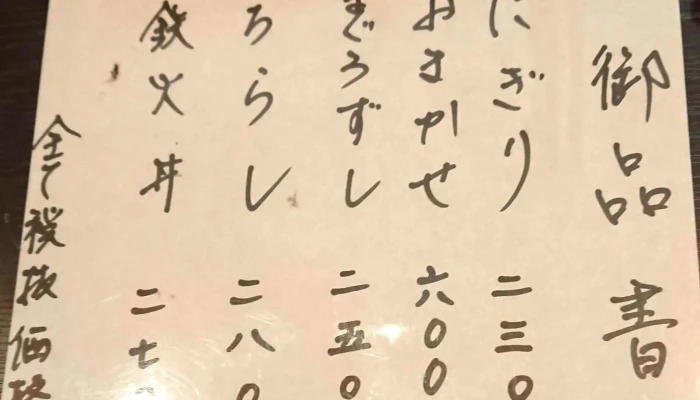 御品書
にぎり 二三〇
おまかせ 六〇〇
まぐろずし 二五〇
ちらし 二八〇
鉄火丼 二七〇
全て税抜価格